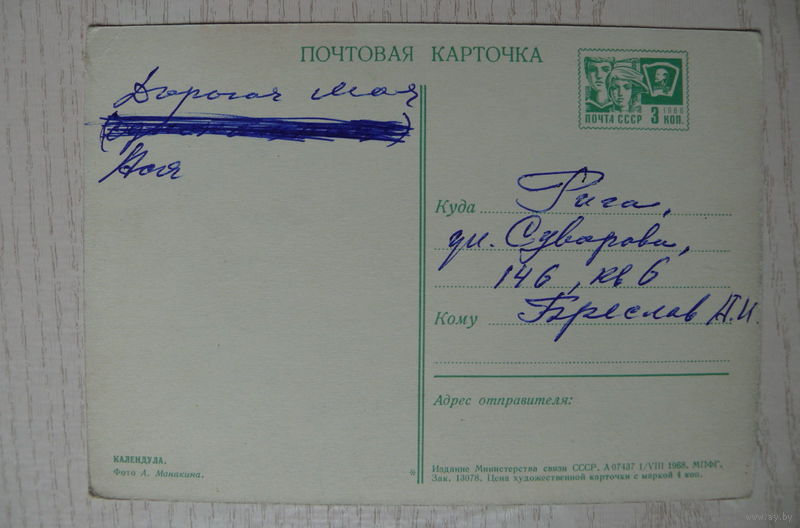 ПОЧТОВАЯ КАРТОЧКА
1966
ПОЧТА СССР 3 КОП.
Дорогая моя
Ася
Куда Рига,
ул. Суворова,
146, кв 6
Кому Бреслав А.И.
Адрес отправителя:
КАЛЕНДУЛА.
Фото А. Манакина.
*
Издание Министерства связи СССР. А 07437 1/VIII 1968. МПФГ.
Зак. 13078. Цена художественной карточки с маркой 4 коп.
www.ay.by